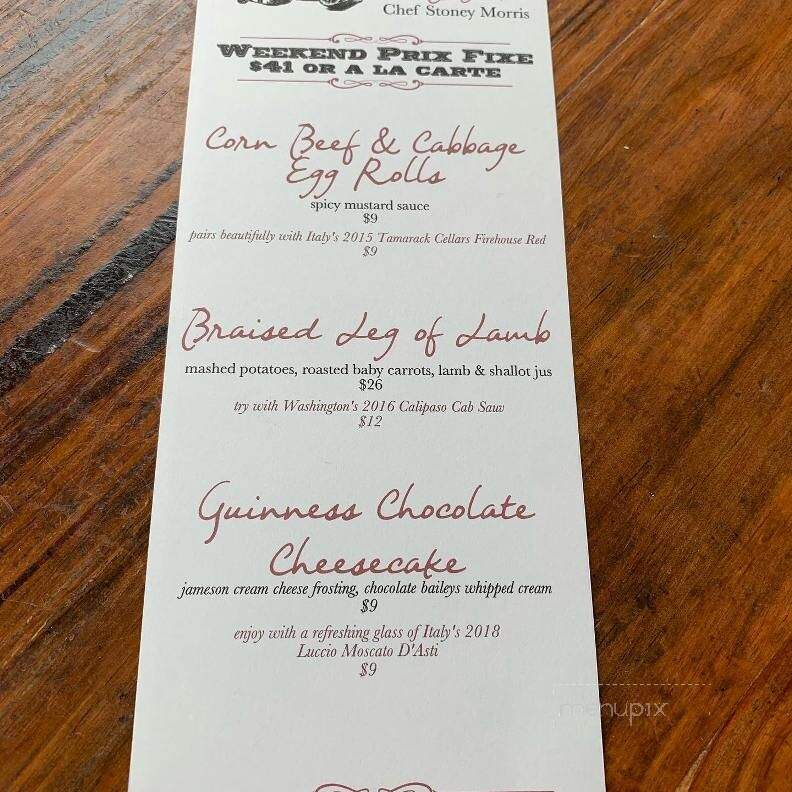 Chef Stoney Morris
WEEKEND PRIX FIXE
$41 OR A LA CARTE
Corn Beef & Cabbage
Egg Rolls
spicy mustard sauce
$9
pairs beautifully with Italy's 2015 Tamarack Cellars Firehouse Red
$9
Braised Leg of Lamb
mashed potatoes, roasted baby carrots, lamb & shallot jus
$26
try with Washington's 2016 Calipaso Cab Sauv
$12
Guinness Chocolate
Cheesecake
jameson cream cheese frosting, chocolate baileys whipped cream
$9
enjoy with a refreshing glass of Italy's 2018
Luccio Moscato D'Asti
$9
menupix